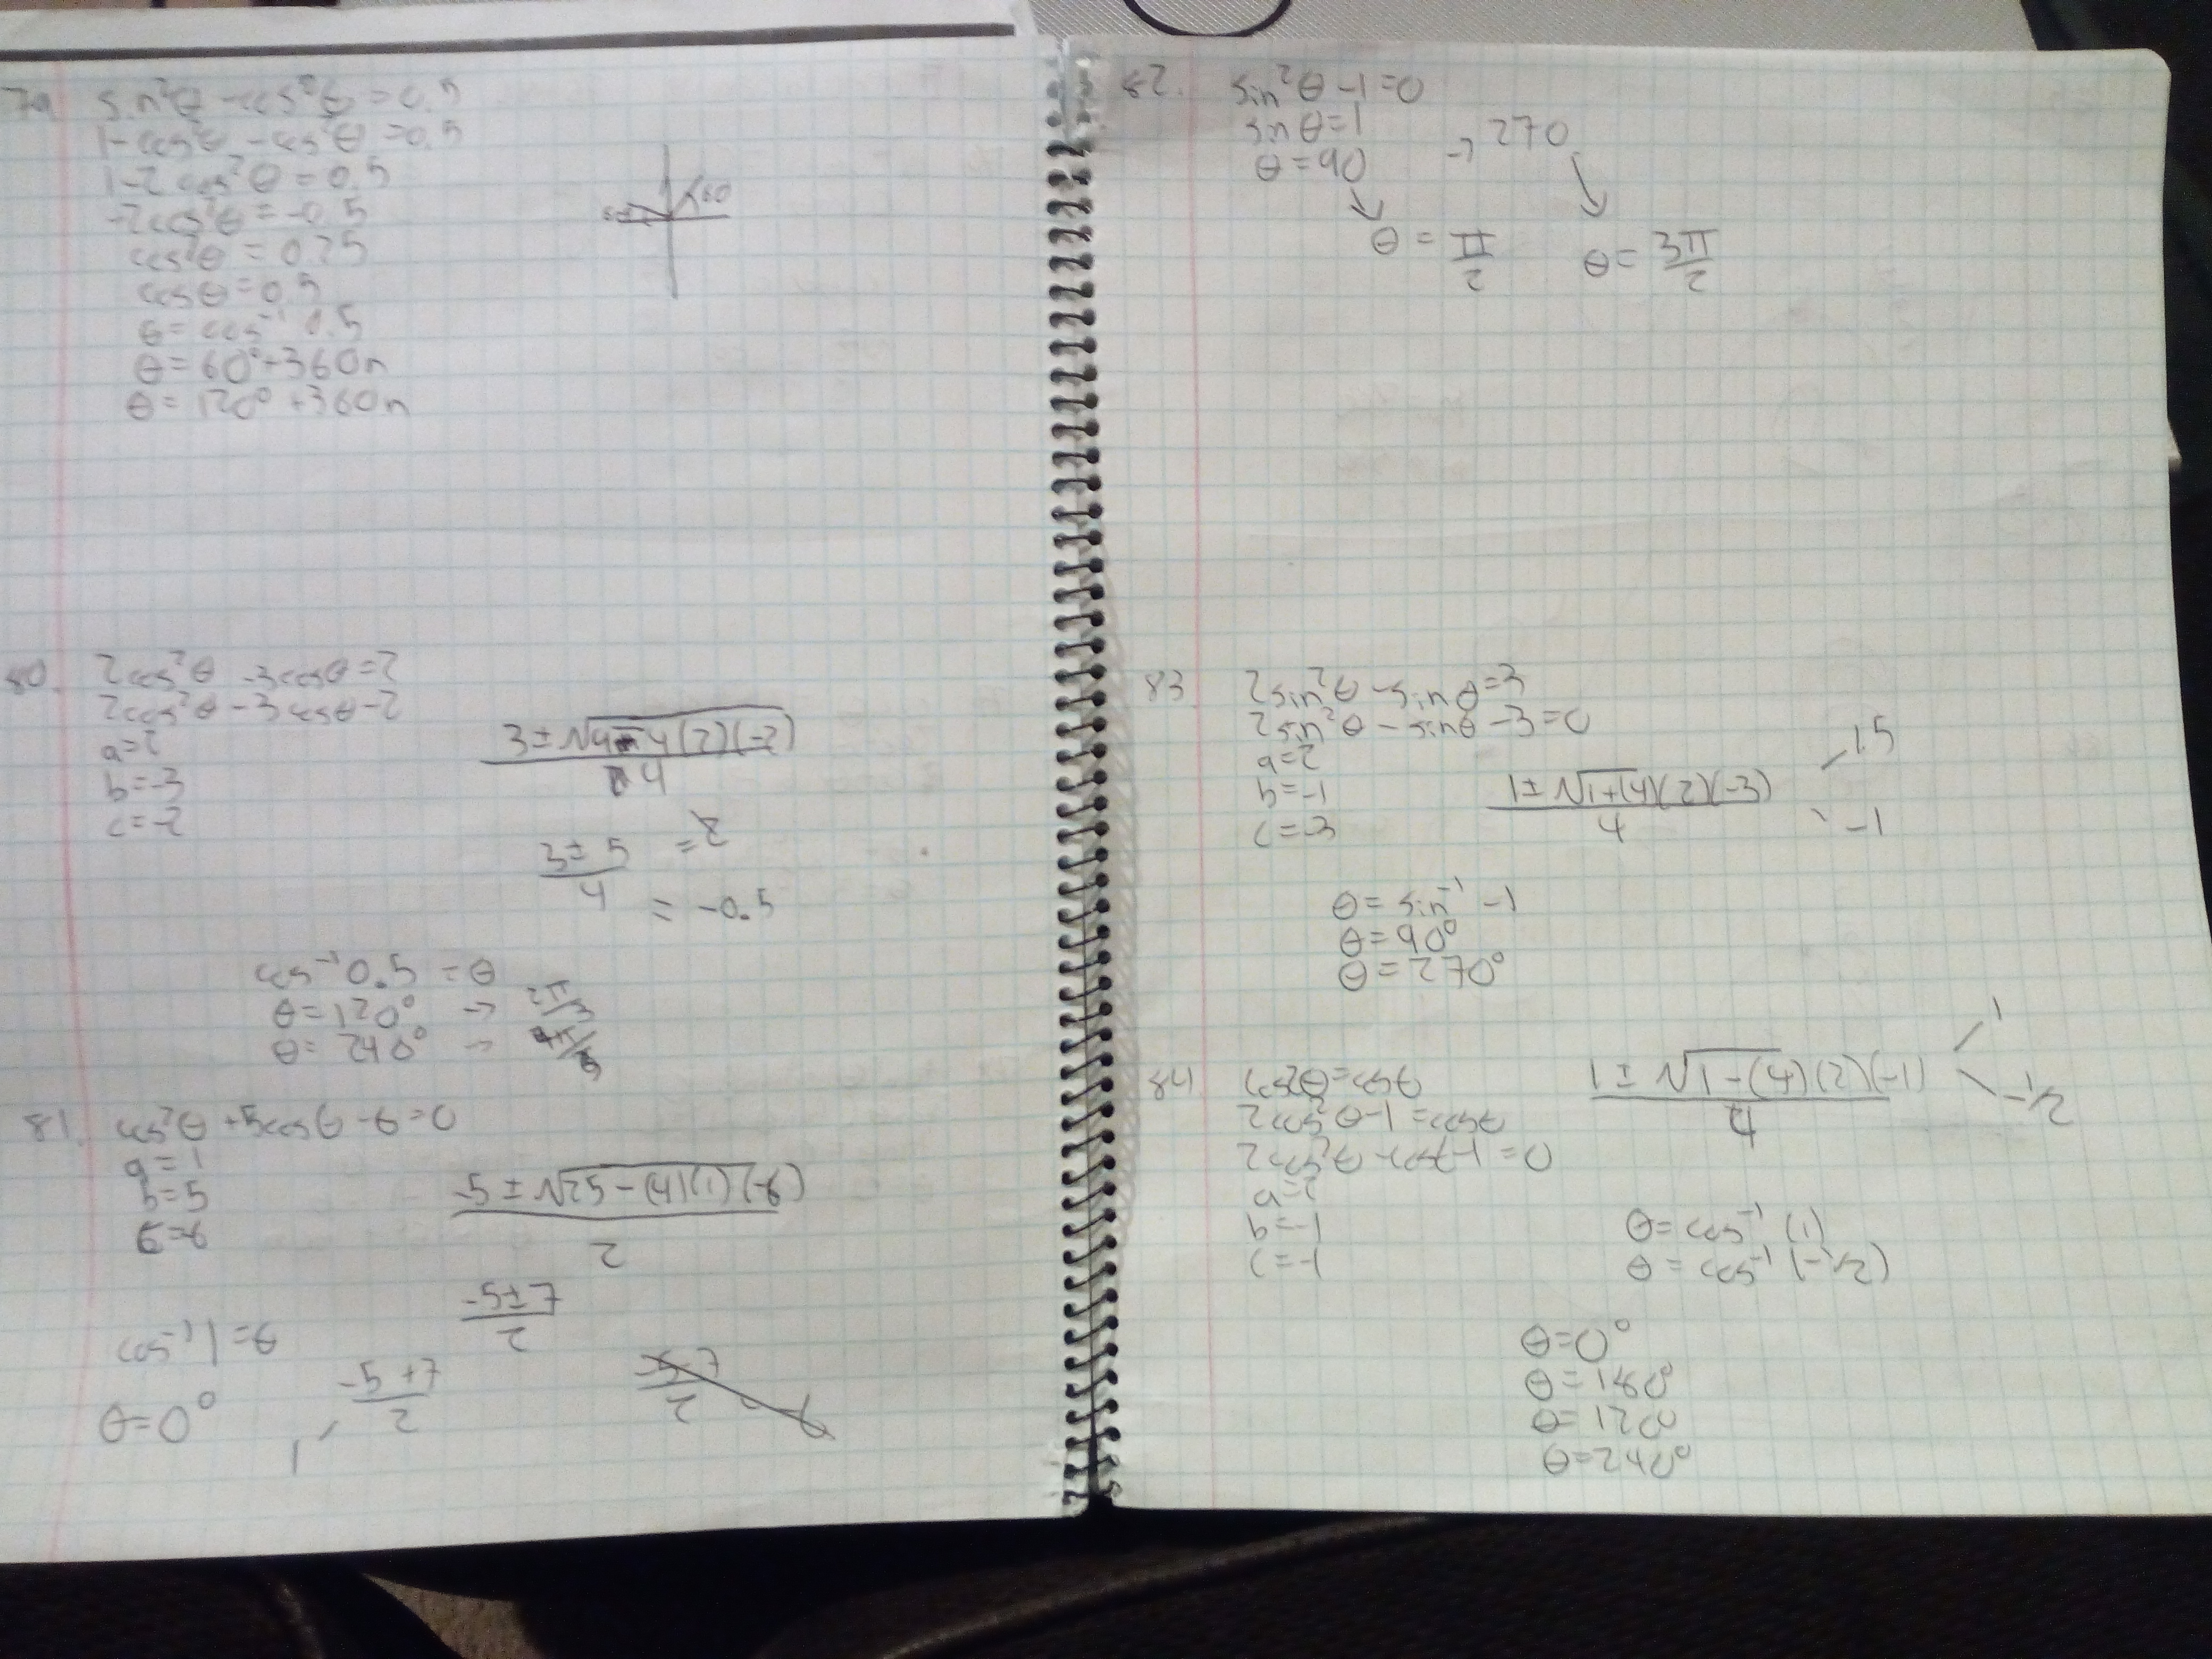 79 sin²θ - cos²θ = 0.5
1 - cos²θ - cos²θ = 0.5
1 - 2cos²θ = 0.5
-2cos²θ = -0.5
cos²θ = 0.25
cosθ = 0.5
θ = cos⁻¹ 0.5
θ = 60° + 360n
θ = 120° + 360n
60
80. 2cos²θ - 3cosθ = 2
2cos²θ - 3cosθ - 2
a = 2
b = -3
c = -2
(3 ± √(9 - 4(2)(-2))) / 4
(3 ± 5) / 4 = 2
= -0.5
cos⁻¹ 0.5 = θ
θ = 120° → 2π/3
θ = 240° → 4π/3
81. cos²θ + 5cosθ - 6 = 0
a = 1
b = 5
c = -6
(-5 ± √(25 - (4)(1)(-6))) / 2
(-5 ± 7) / 2
cos⁻¹ 1 = θ
(-5 + 7) / 2
1
θ = 0°
82. sin²θ - 1 = 0
sinθ = 1
θ = 90 → 270
θ = π/2 θ = 3π/2
83 2sin²θ - sinθ = 3
2sin²θ - sinθ - 3 = 0
a = 2
b = -1
c = -3
(1 ± √(1 + (4)(2)(-3))) / 4
1.5
-1
θ = sin⁻¹ -1
θ = 90°
θ = 270°
84 cos2θ = cosθ
2cos²θ - 1 = cosθ
2cos²θ - cosθ - 1 = 0
a = 2
b = -1
c = -1
(1 ± √(1 - (4)(2)(-1))) / 4
1
-1/2
θ = cos⁻¹ (1)
θ = cos⁻¹ (-1/2)
θ = 0°
θ = 180°
θ = 120
θ = 240°